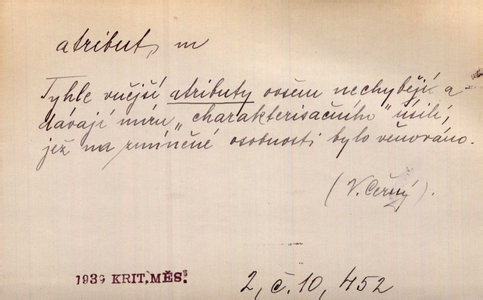 atribut, m
Tyhle vnější atributy ovšem nechybějí a
dávají míru „charakterisačního" úsilí,
jež na zmíněné osobnosti bylo věnováno.
(V. Černý).
1939 KRIT. MĚS.
2, č. 10, 452